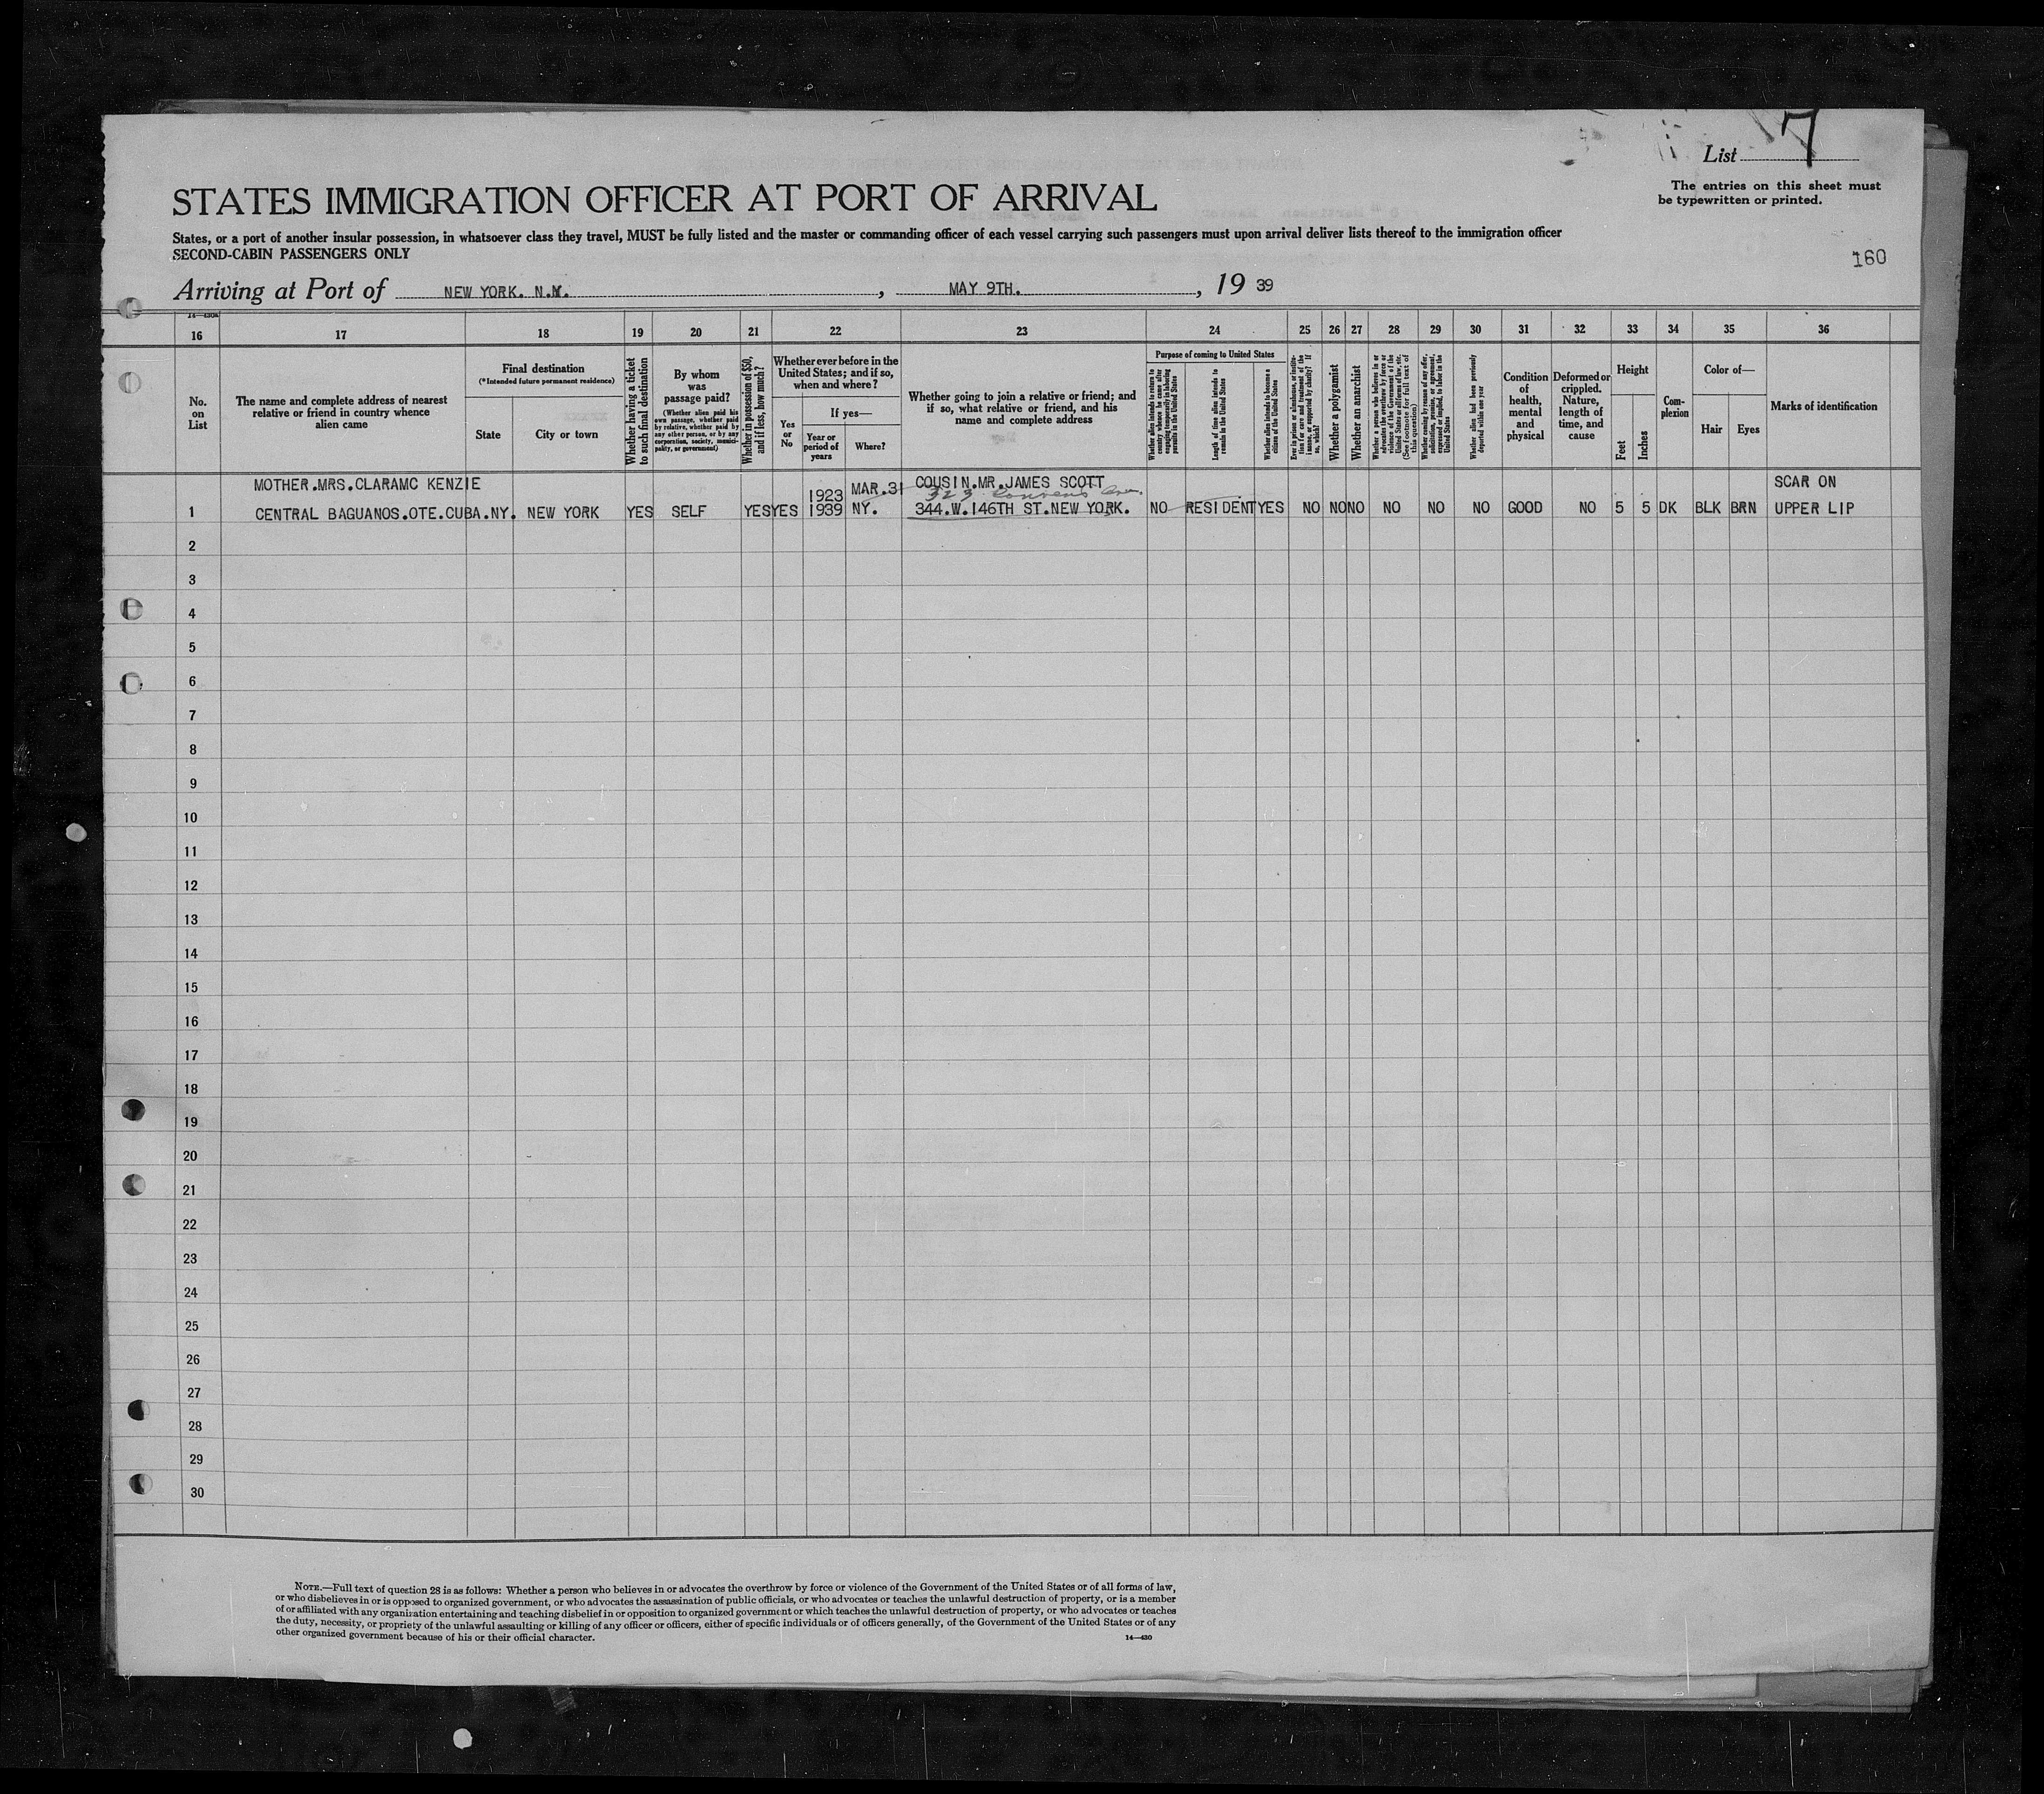 List 7
The entries on this sheet must
be typewritten or printed.
STATES IMMIGRATION OFFICER AT PORT OF ARRIVAL
States, or a port of another insular possession, in whatsoever class they travel, MUST be fully listed and the master or commanding officer of each vessel carrying such passengers must upon arrival deliver lists thereof to the immigration officer
SECOND-CABIN PASSENGERS ONLY
160
Arriving at Port of NEW YORK. N.Y. , MAY 9TH. , 19 39
16 17 18 19 20 21 22 23 24 25 26 27 28 29 30 31 32 33 34 35 36
No.
on
List
The name and complete address of nearest
relative or friend in country whence
alien came
Final destination
(*Intended future permanent residence)
State
City or town
Whether having a ticket
to such final destination
By whom
was
passage paid?
(Whether alien paid his
own passage, whether paid
by relative, whether paid by
any other person, or by any
corporation, society, munici-
pality, or government)
Whether in possession of $50,
and if less, how much?
Whether ever before in the
United States; and if so,
when and where?
Yes
or
No
If yes—
Year or
period of
years
Where?
Whether going to join a relative or friend; and
if so, what relative or friend, and his
name and complete address
Purpose of coming to United States
Whether alien intends to return to
country whence he came after
engaging temporarily in laboring
pursuits in the United States
Length of time alien intends to
remain in the United States
Whether alien intends to become a
citizen of the United States
Ever in prison or almshouse, or institu-
tion for care and treatment of the
insane, or supported by charity? If
so, which?
Whether a polygamist
Whether an anarchist
Whether a person who believes in or
advocates the overthrow by force or
violence of the Government of the
United States or all forms of law, etc.
(See footnote for full text of
this question)
Whether coming by reason of any offer,
solicitation, promise, or agreement,
expressed or implied, to labor in the
United States
Whether alien had been previously
deported within one year
Condition
of
health,
mental
and
physical
Deformed or
crippled.
Nature,
length of
time, and
cause
Height
Feet
Inches
Com-
plexion
Color of—
Hair
Eyes
Marks of identification
MOTHER.MRS.CLARAMC KENZIE 1923 MAR.31 COUSIN.MR.JAMES SCOTT SCAR ON
323 Convent Ave.
1 CENTRAL BAGUANOS.OTE.CUBA.NY. NEW YORK YES SELF YES YES 1939 NY. 344.W.146TH ST.NEW YORK. NO RESIDENT YES NO NO NO NO NO NO GOOD NO 5 5 DK BLK BRN UPPER LIP
2
3
4
5
6
7
8
9
10
11
12
13
14
15
16
17
18
19
20
21
22
23
24
25
26
27
28
29
30
NOTE.—Full text of question 28 is as follows: Whether a person who believes in or advocates the overthrow by force or violence of the Government of the United States or of all forms of law,
or who disbelieves in or is opposed to organized government, or who advocates the assassination of public officials, or who advocates or teaches the unlawful destruction of property, or is a member
of or affiliated with any organization entertaining and teaching disbelief in or opposition to organized government or which teaches the unlawful destruction of property, or who advocates or teaches
the duty, necessity, or propriety of the unlawful assaulting or killing of any officer or officers, either of specific individuals or of officers generally, of the Government of the United States or of any
other organized government because of his or their official character.
14—430